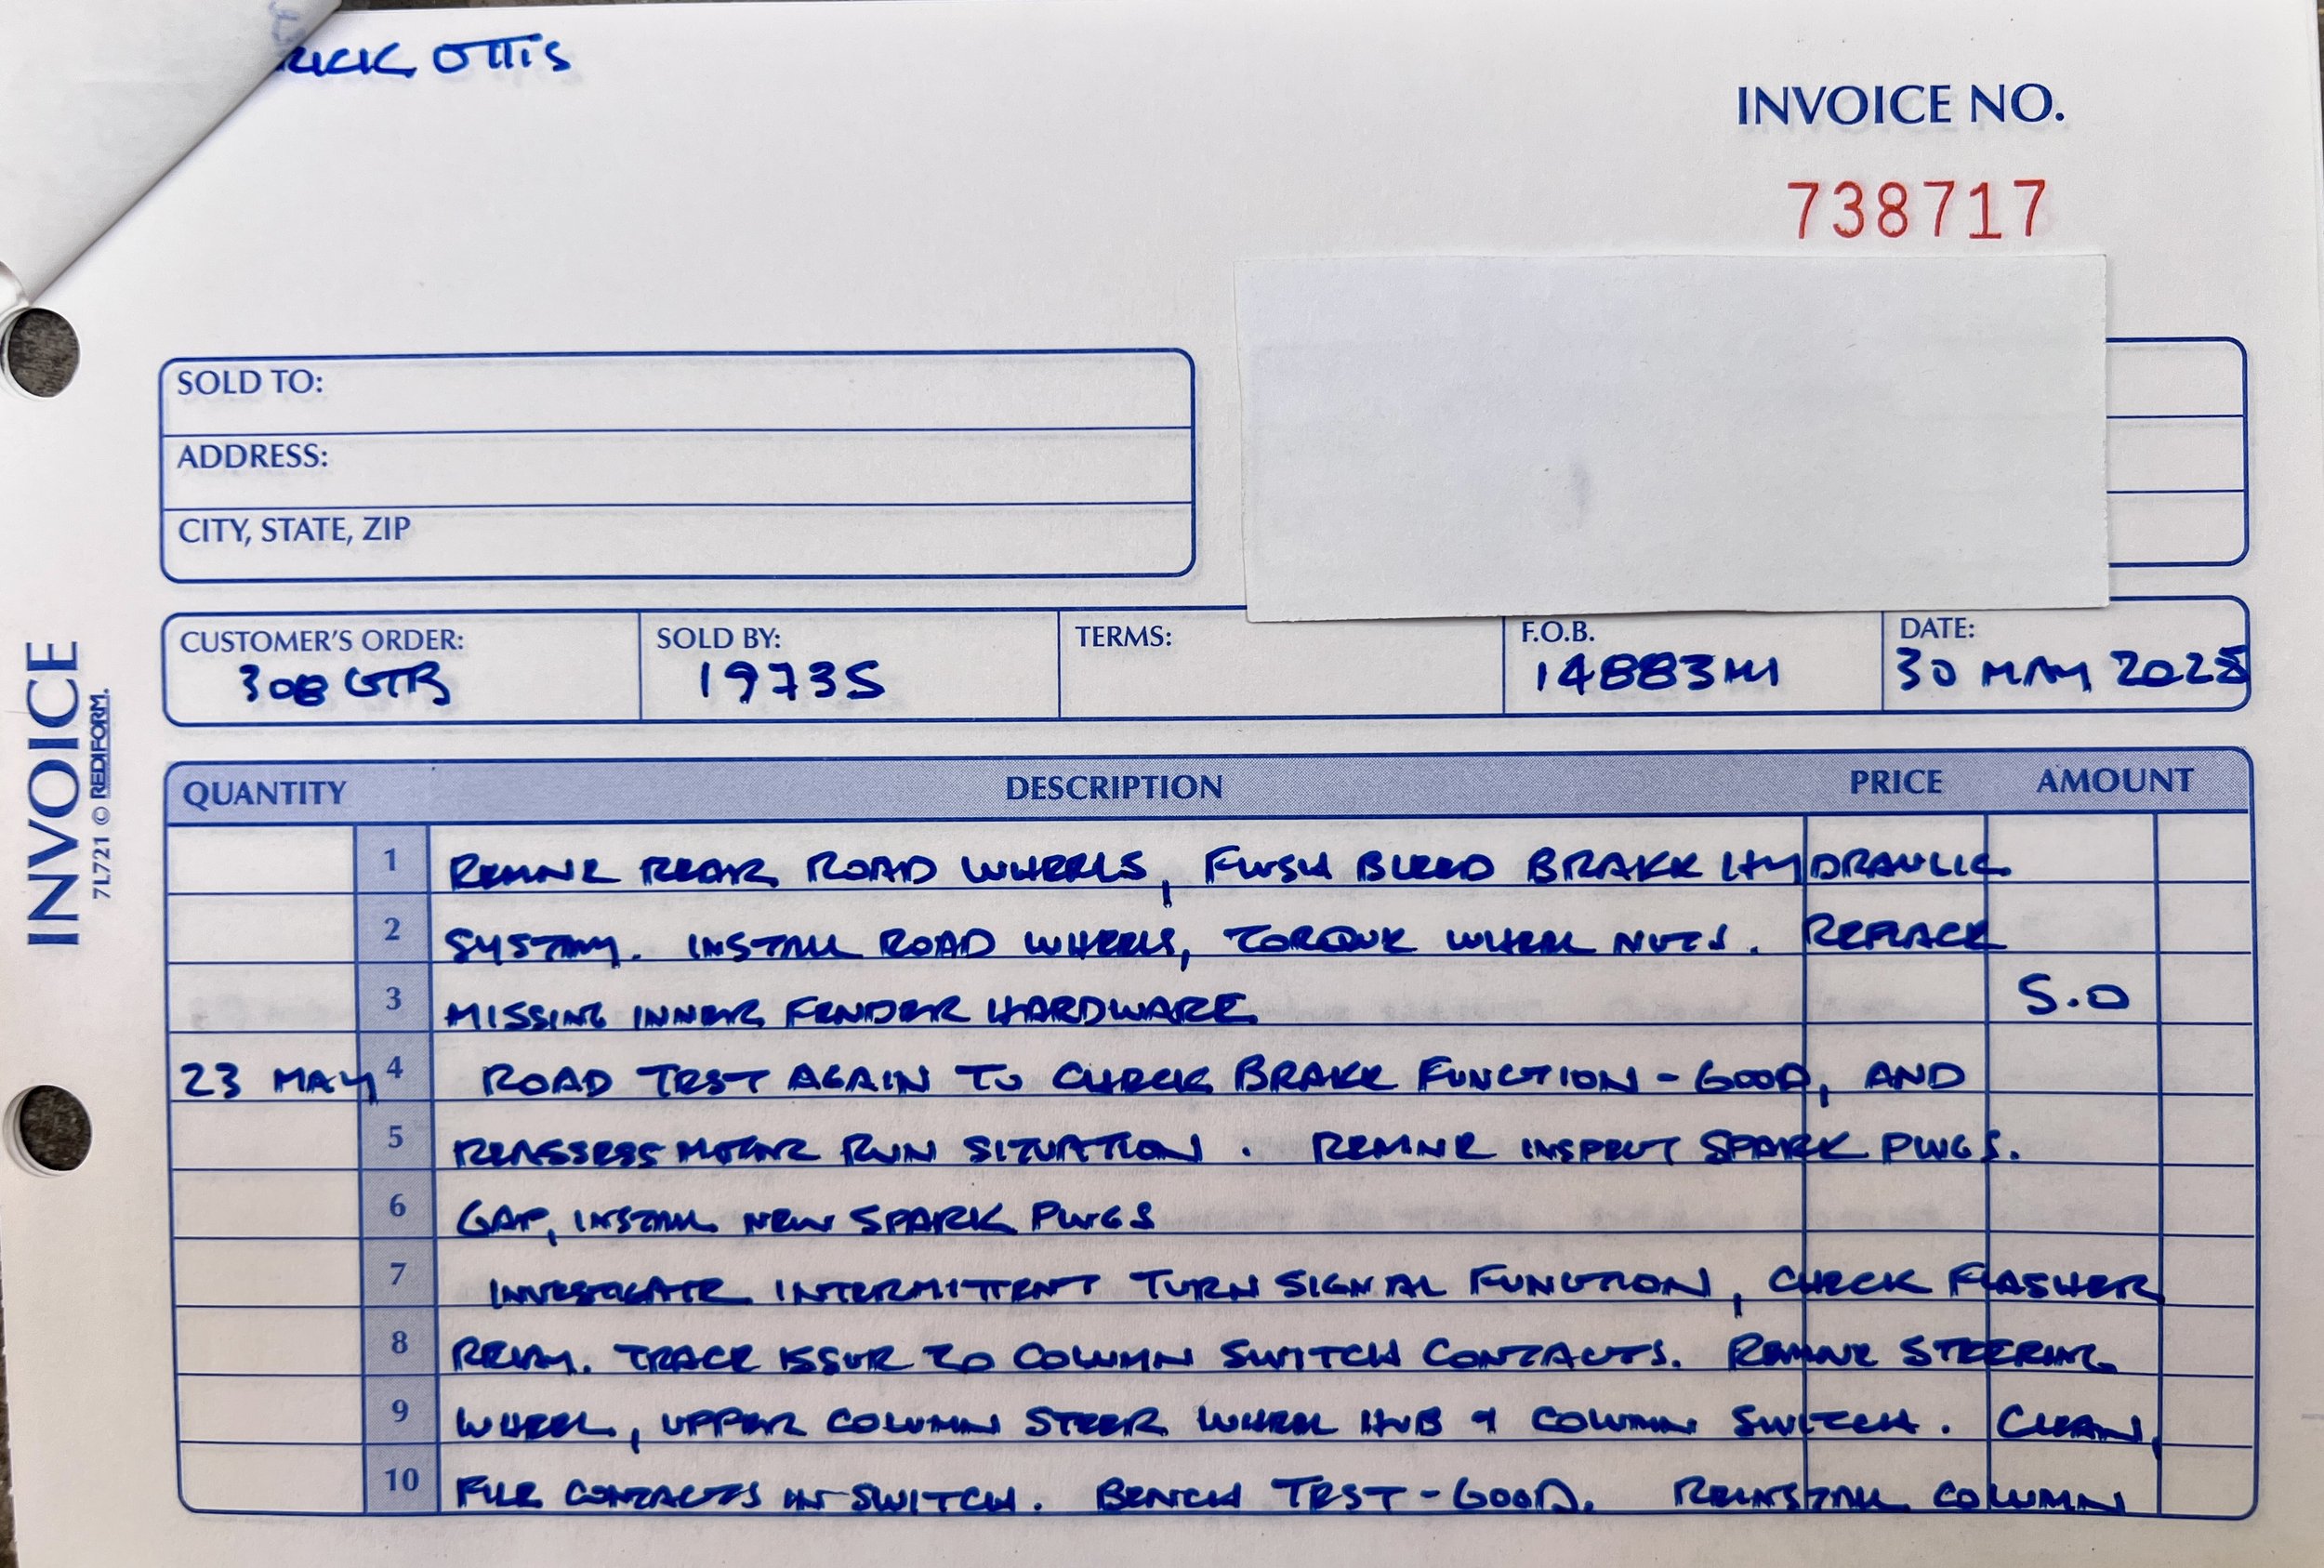 RICK OTTIS
INVOICE NO.
738717
SOLD TO:
ADDRESS:
CITY, STATE, ZIP
CUSTOMER'S ORDER:
308 GTB
SOLD BY:
19735
TERMS:
F.O.B.
14883 MI
DATE:
30 MAY 2025
INVOICE
7L721 © REDIFORM.
QUANTITY DESCRIPTION PRICE AMOUNT
1 REMOVE REAR ROAD WHEELS, FLUSH BLEED BRAKE HYDRAULIC
2 SYSTEM. INSTALL ROAD WHEELS, TORQUE WHEEL NUTS. REPLACE
3 MISSING INNER FENDER HARDWARE 5.0
23 MAY 4 ROAD TEST AGAIN TO CHECK BRAKE FUNCTION - GOOD, AND
5 REASSESS MOTOR RUN SITUATION. REMOVE INSPECT SPARK PLUGS.
6 GAP, INSTALL NEW SPARK PLUGS
7 INVESTIGATE INTERMITTENT TURN SIGNAL FUNCTION, CHECK FLASHER
8 RELAY. TRACE ISSUE TO COLUMN SWITCH CONTACTS. REMOVE STEERING
9 WHEEL, UPPER COLUMN STEER WHEEL HUB & COLUMN SWITCH. CLEAN,
10 FILE CONTACTS IN SWITCH. BENCH TEST - GOOD. REINSTALL COLUMN